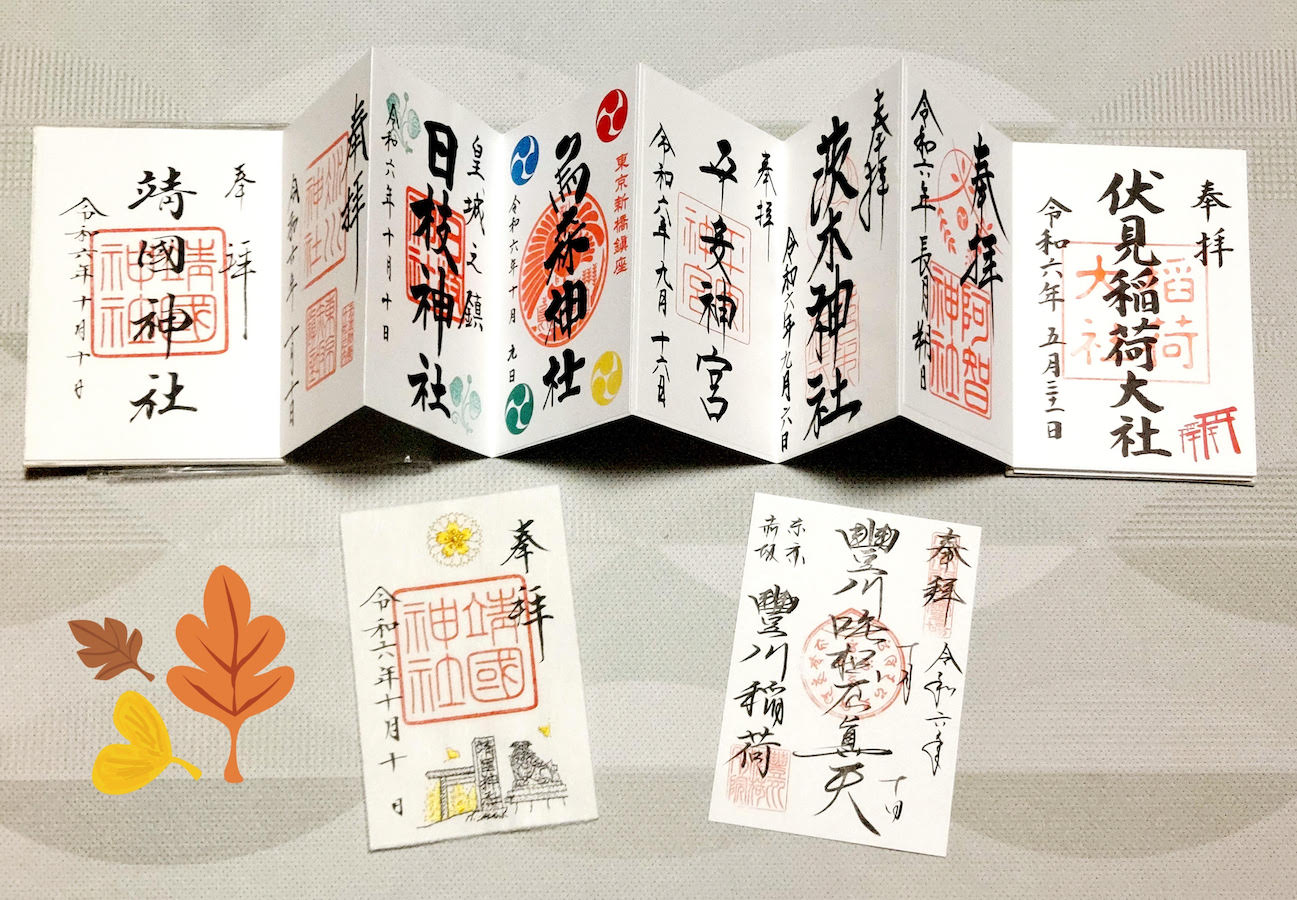 奉拝
伏見稲荷大社
稲荷
大社
令和六年 五月三十一日
奉拝
阿智
神社
令和六年 長月朔日
奉拝
茨木神社
令和六年九月六日
奉拝
平安神宮
平安
神宮
令和六年九月十六日
東京新橋鎮座
烏森神社
令和六年十月九日
皇城之鎮
日枝神社
令和六年十月十日
奉拝
神社
令和六年十月十日
奉拝
靖國神社
靖國
神社
令和六年十月十日
奉拝
令和六年
十月
十日
豐川吒枳尼眞天
東京
赤坂
豐川稲荷
奉拝
靖國
神社
令和六年十月十日
靖国神社